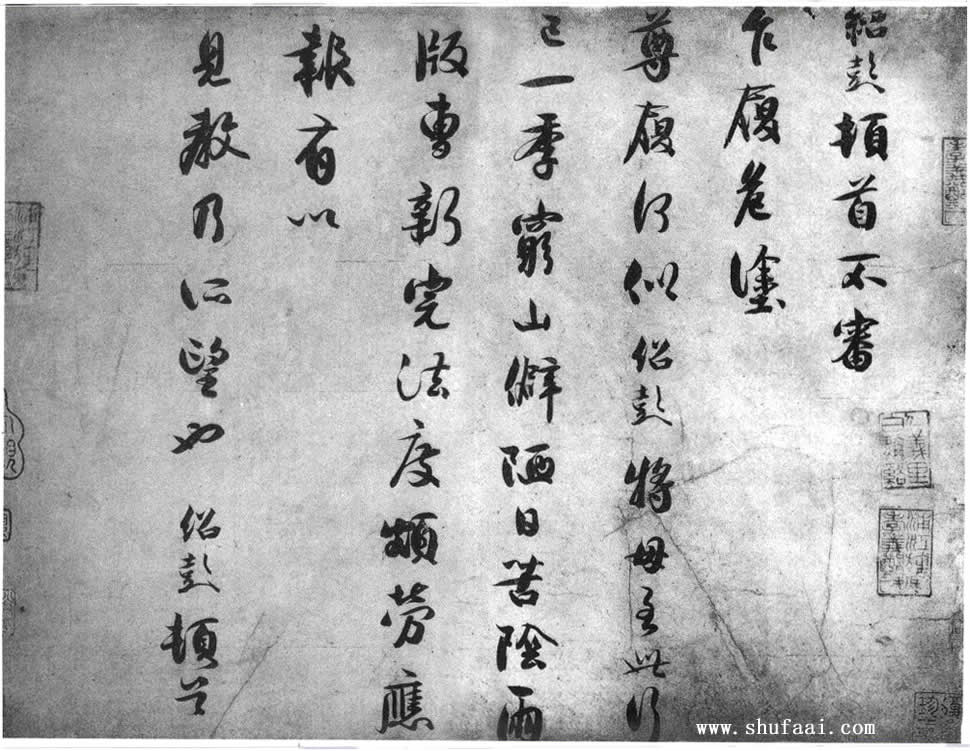 紹彭頓首不審
乍履危塗
尊履何似紹彭將母至此行
已一季窮山僻陋日苦陰雨
版曹新法度頗勞應
報有以
見教乃所望也紹彭頓首
www.shufaai.com